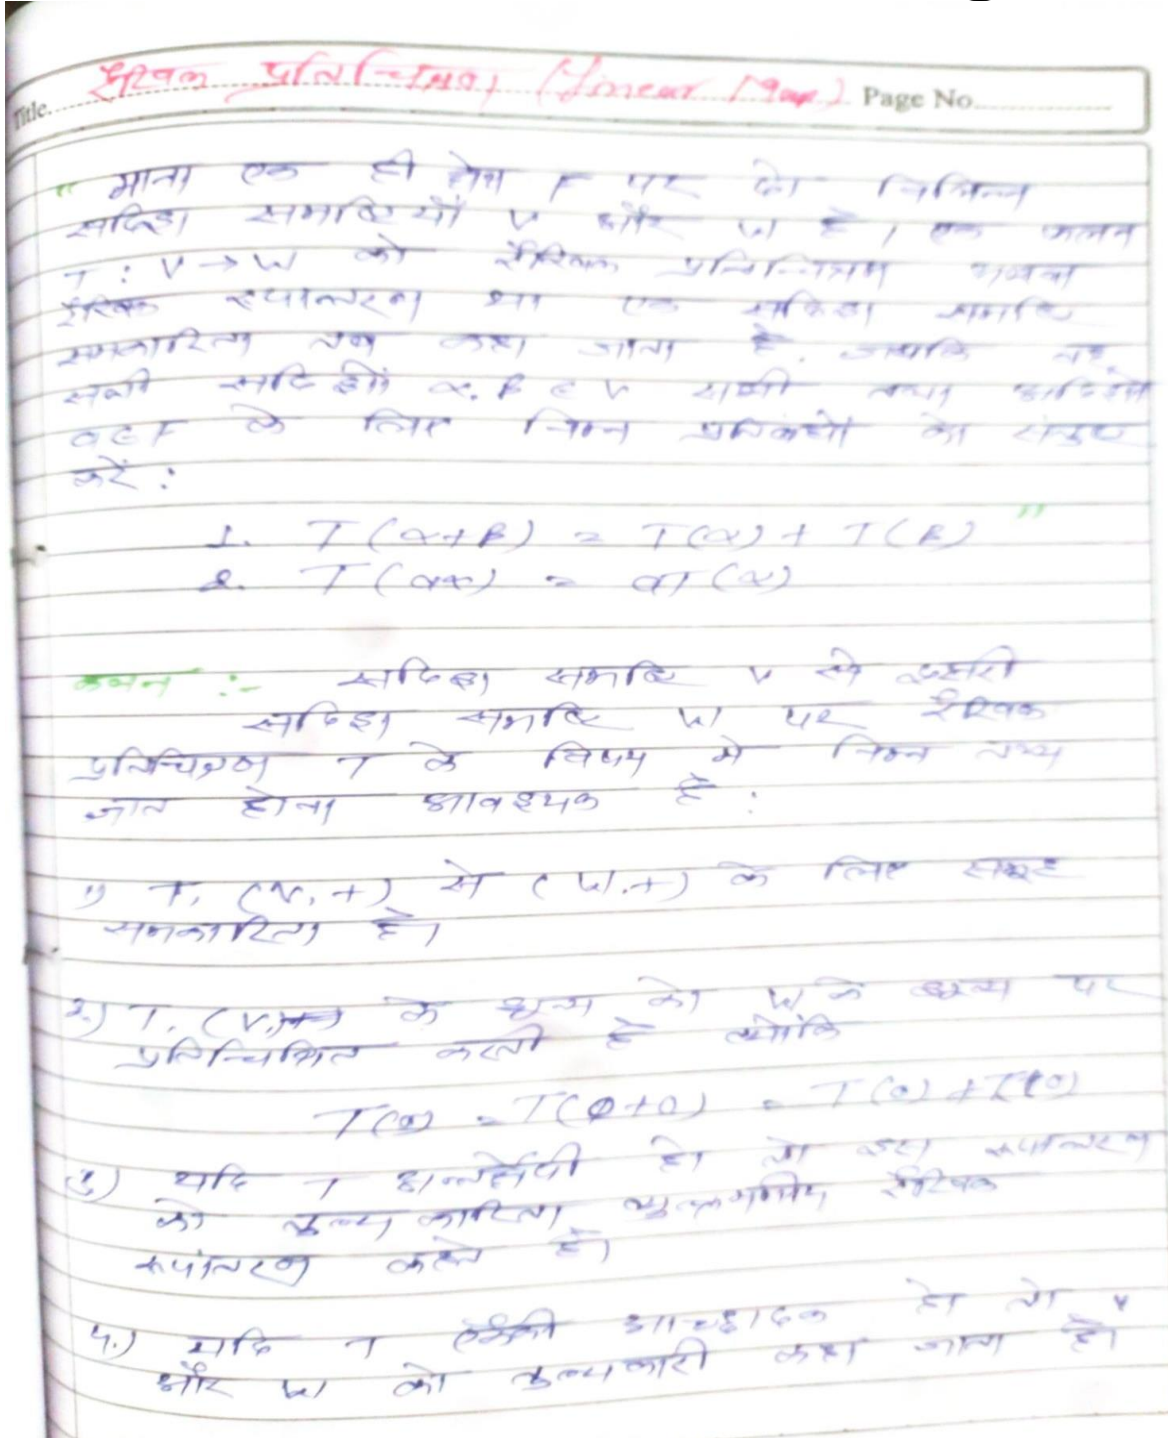 Title. रैखिक प्रतिचित्रण (Linear Map) Page No.
" माना एक ही क्षेत्र F पर दो विभिन्न
सदिश समष्टियाँ V और W है । एक फलन
T : V → W को रैखिक प्रतिचित्रण अथवा
रैखिक रूपान्तरण या एक सदिश समष्टि
समकारिता तब कहा जाता है . जबकि वह
सभी सदिशों α, β ∈ V सभी तथा अदिशों
a ∈ F के लिए निम्न प्रतिबंधों को संतुष्ट
करें :
1. T(α+β) = T(α) + T(β) "
2. T(aα) = aT(α)
कथन :- सदिश समष्टि V से दूसरी
सदिश समष्टि W पर रैखिक
प्रतिचित्रण T के विषय में निम्न तथ्य
ज्ञात होना आवश्यक है :
1) T, (V, +) से (W, +) के लिए समूह
समकारिता है।
2.) T, (V, +) के शून्य को W के शून्य पर
प्रतिचित्रित करती है क्योंकि
T(0) = T(0+0) = T(0) + T(0)
3) यदि T हो तो इस रूपान्तरण
को तुल्यकारिता व्युत्क्रमणीय रैखिक
रूपांतरण कहते है।
4.) यदि T एकैकी आच्छादक हो तो V
और W को तुल्यकारी कहा जाता है।